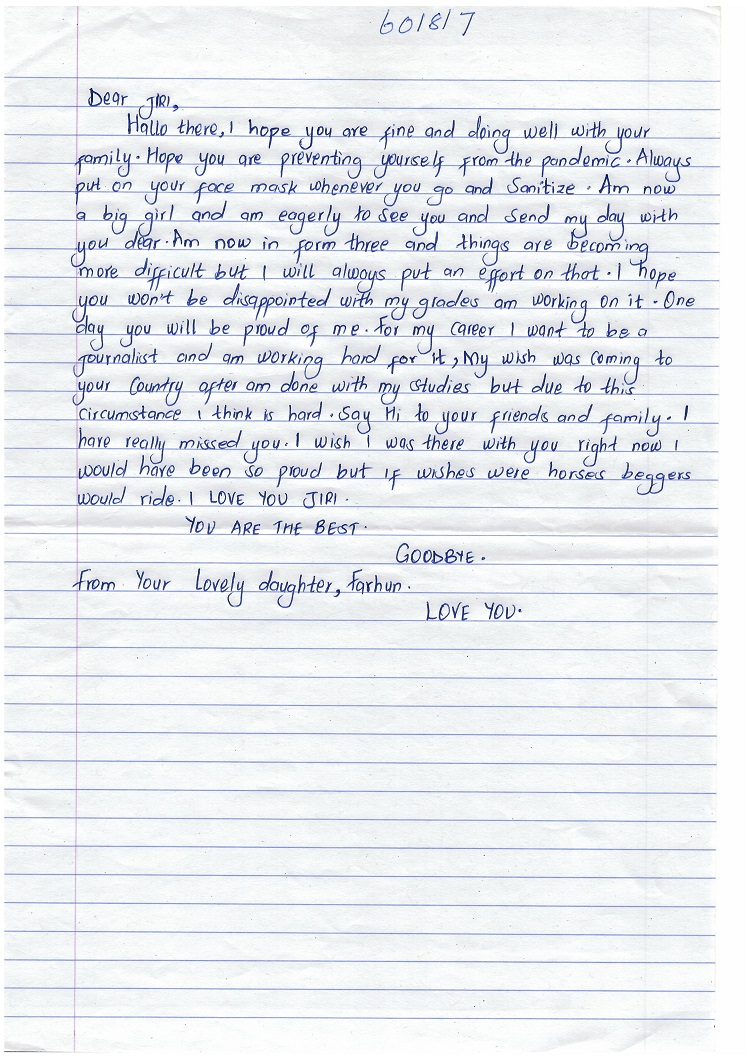 601817
Dear JIRI,
Hallo there, I hope you are fine and doing well with your
family. Hope you are preventing yourself from the pandemic. Always
put on your face mask whenever you go and Sanitize. Am now
a big girl and am eagerly to see you and send my day with
you dear. Am now in form three and things are becoming
more difficult but I will always put an effort on that. I hope
you won't be disappointed with my grades am working on it. One
day you will be proud of me. For my career I want to be a
journalist and am working hard for it, My wish was coming to
your Country after am done with my studies but due to this
circumstance i think is hard. Say Hi to your friends and family. I
have really missed you. I wish I was there with you right now I
would have been so proud but if wishes were horses beggers
would ride. I LOVE YOU JIRI.
YOU ARE THE BEST.
GOODBYE.
From Your Lovely daughter, Farhun.
LOVE YOU.